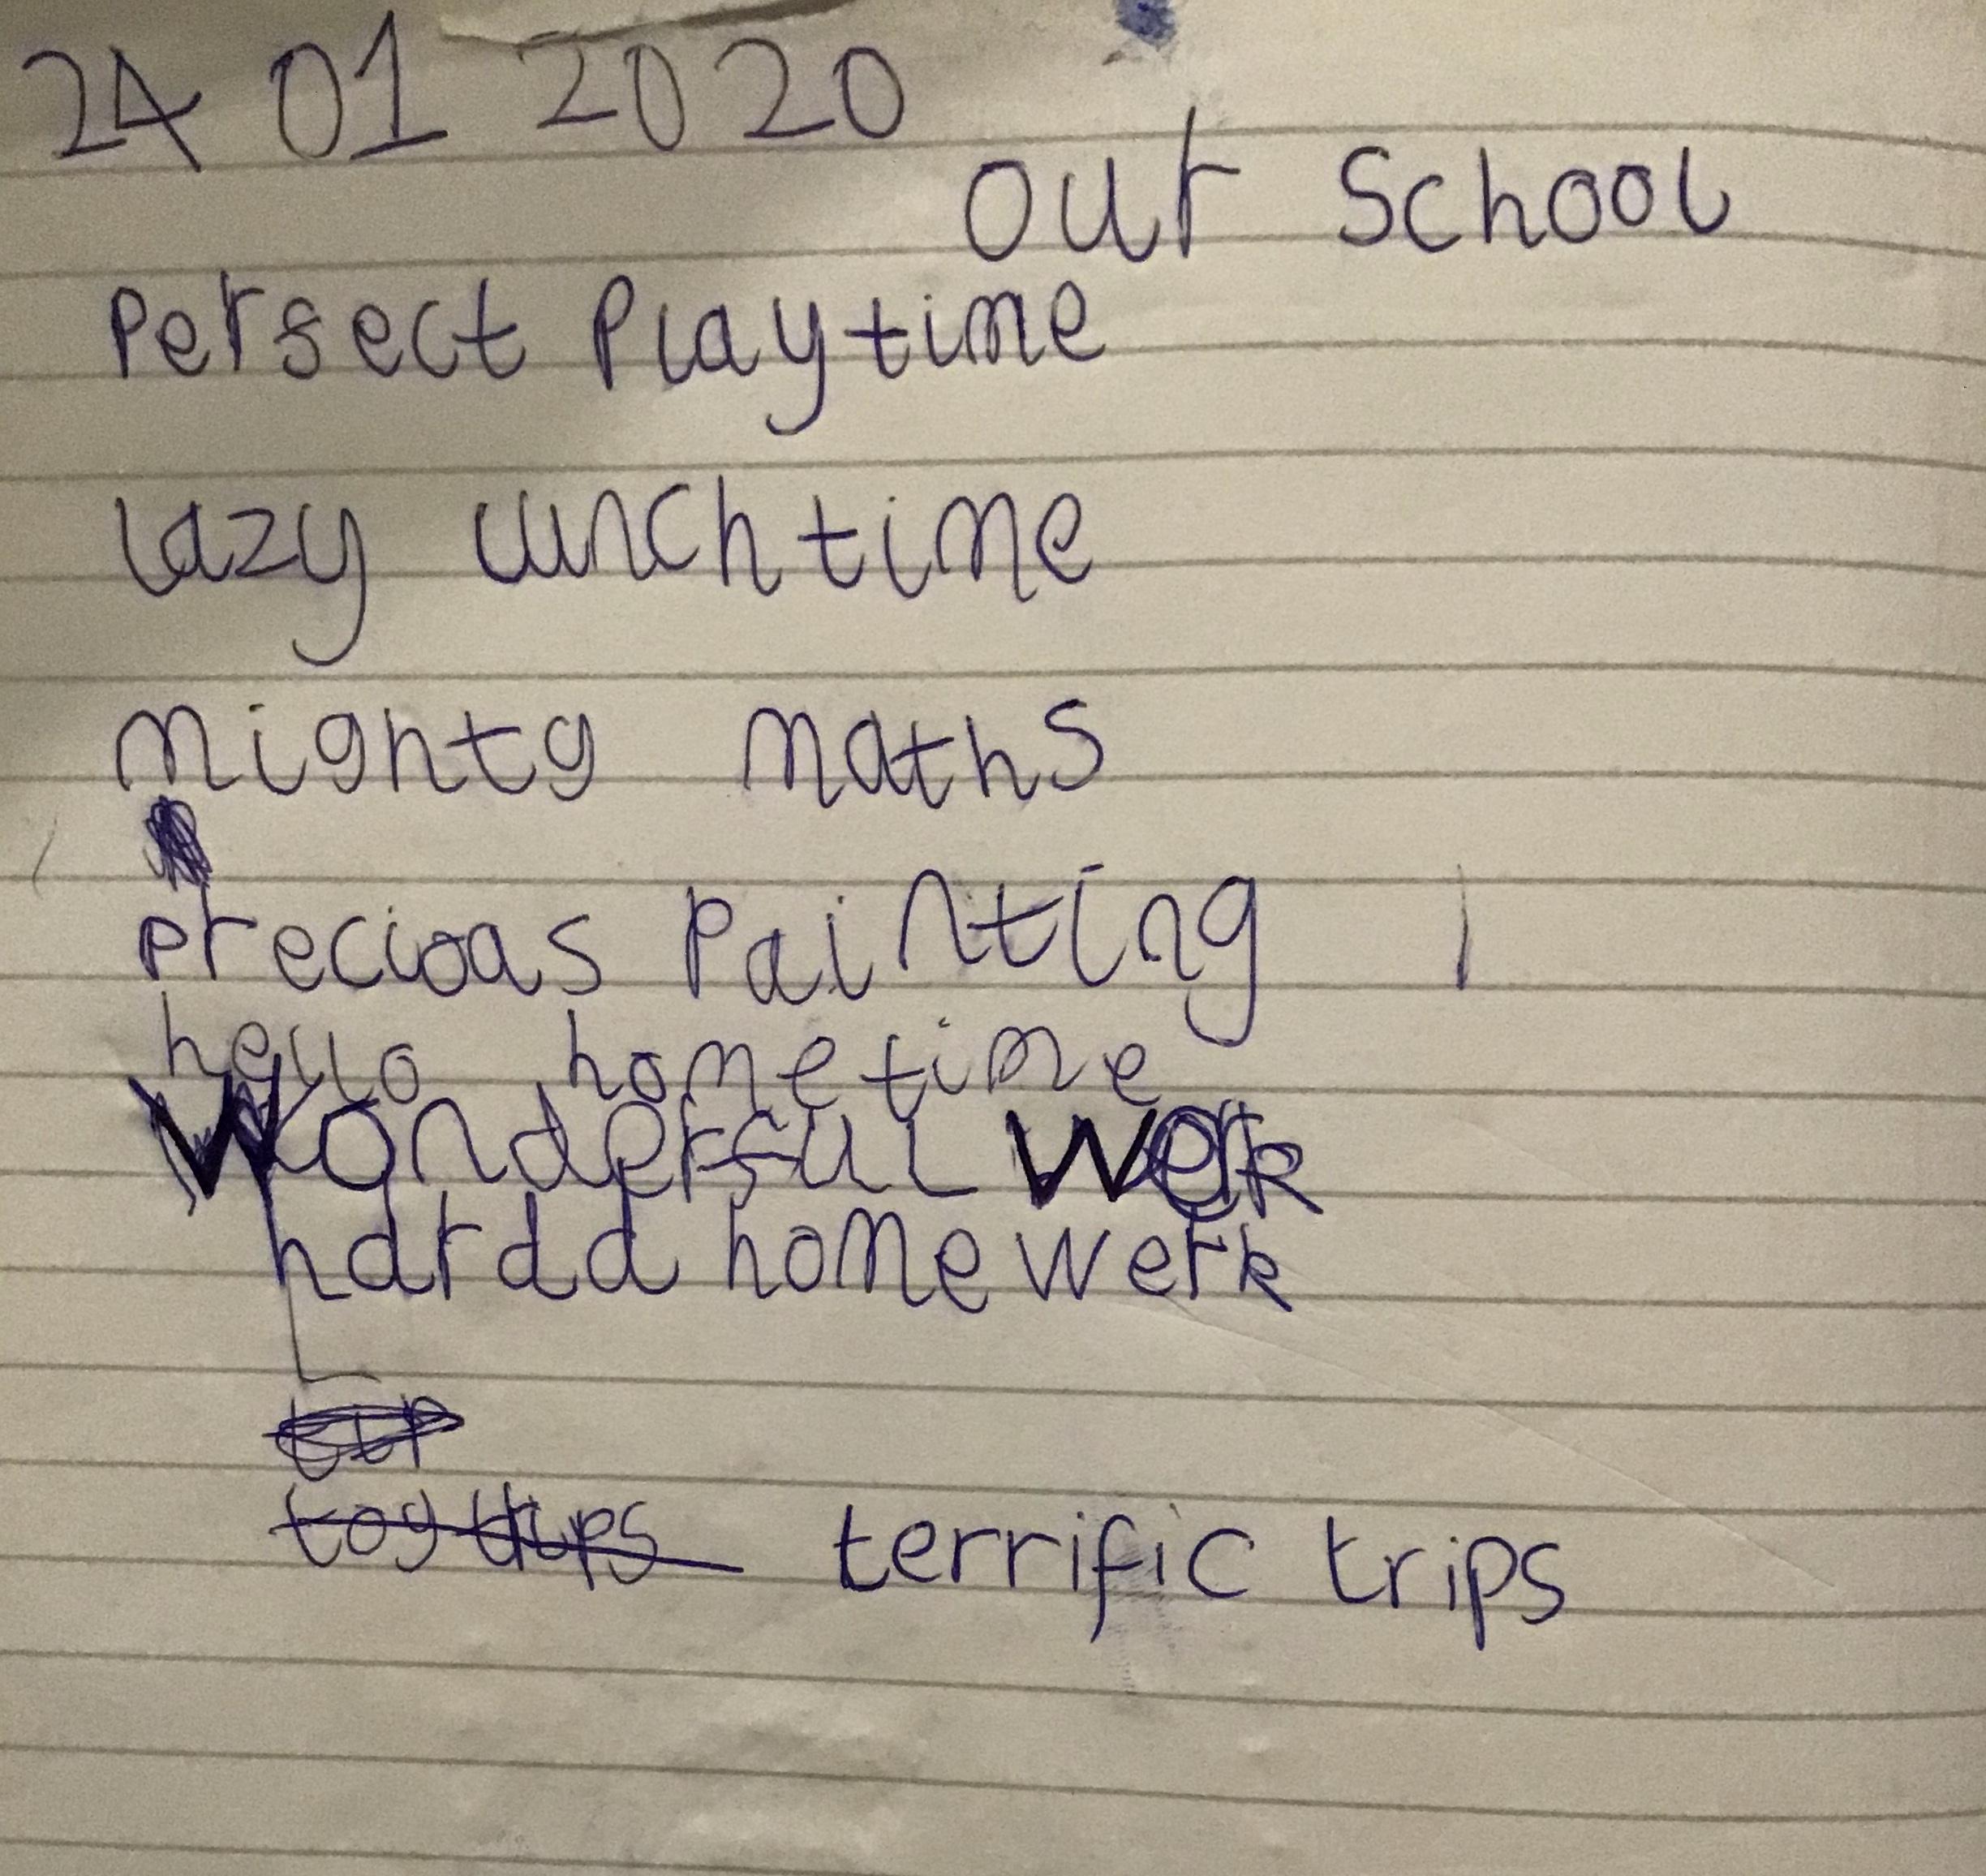 24 01 2020
our school
Persect Playtime
lazy lunchtime
mighty maths
precioas Painting
hello hometime
Wonderful werk
hardd homewerk
toy trips terrific trips